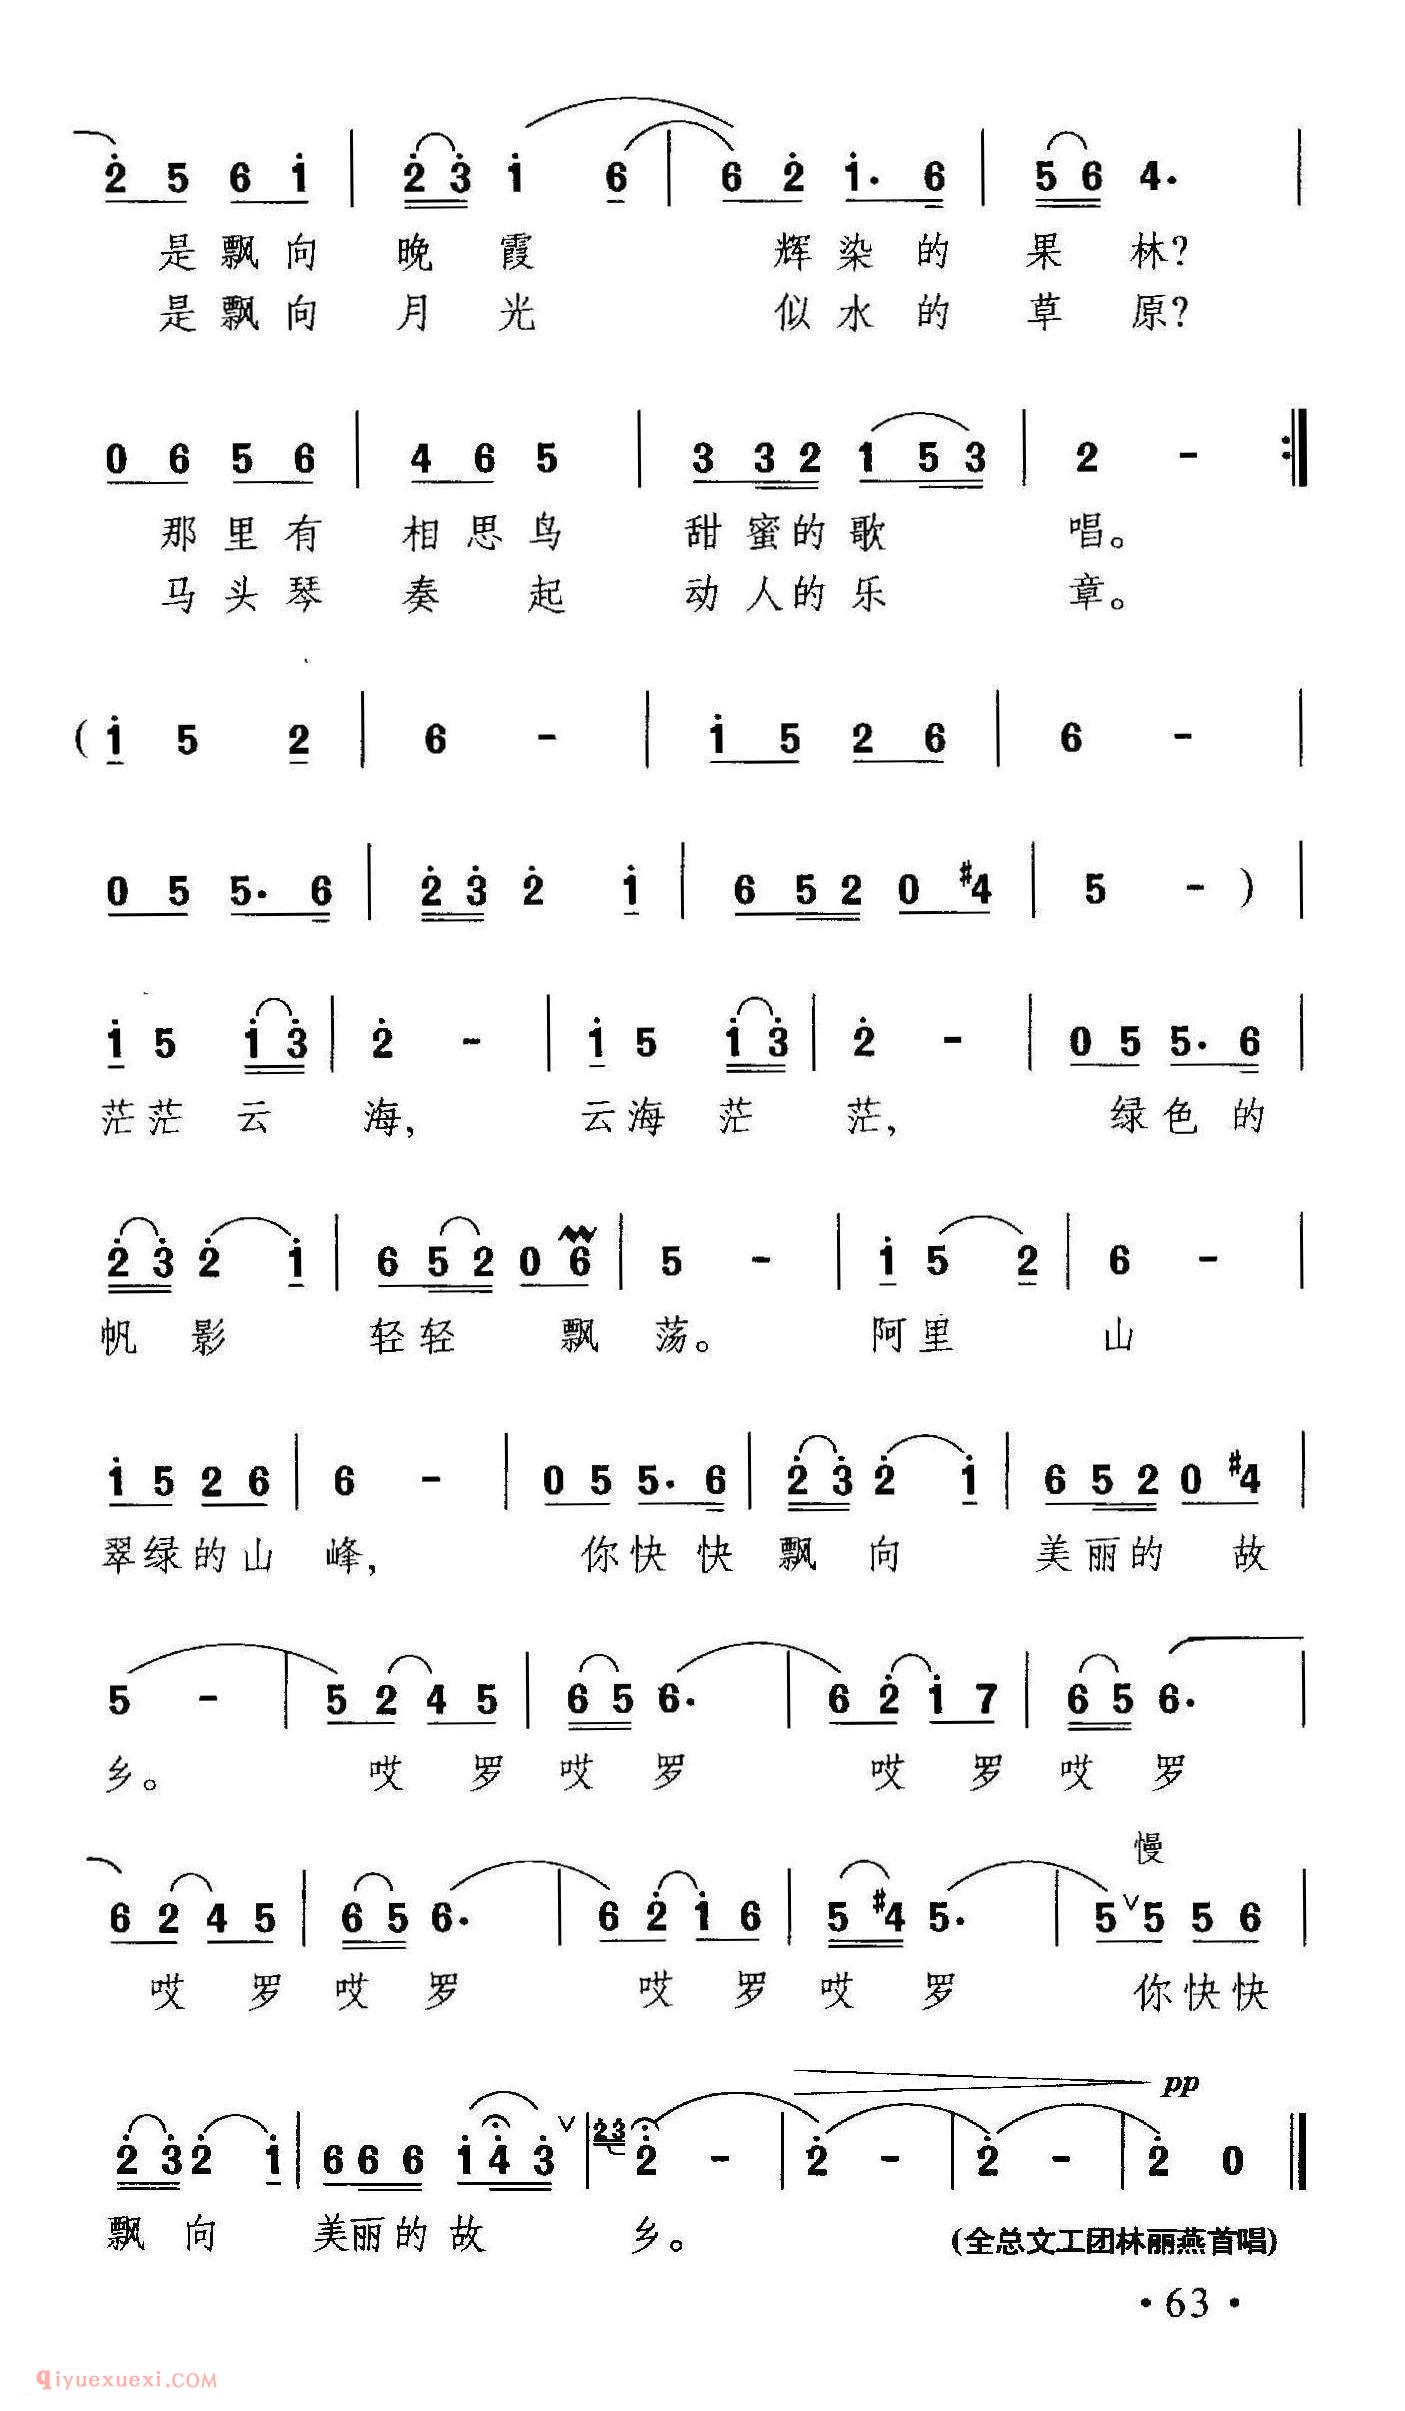 2 5 6 1 | 2 3 1 6 | 6 2 1. 6 | 5 6 4. |
是飘向 晚霞 辉染的果林?
是飘向 月光 似水的草原?
0 6 5 6 | 4 6 5 | 3 3 2 1 5 3 | 2 - :‖
那里有 相思鸟 甜蜜的歌 唱。
马头琴 奏起 动人的乐 章。
( 1 5 2 | 6 - | 1 5 2 6 | 6 - |
0 5 5. 6 | 2 3 2 1 | 6 5 2 0 #4 | 5 - ) |
1 5 1 3 | 2 - | 1 5 1 3 | 2 - | 0 5 5. 6 |
茫茫云 海, 云海茫 茫, 绿色的
2 3 2 1 | 6 5 2 0 6 | 5 - | 1 5 2 | 6 - |
帆影 轻轻 飘荡。 阿里 山
1 5 2 6 | 6 - | 0 5 5. 6 | 2 3 2 1 | 6 5 2 0 #4 |
翠绿的山 峰, 你快快 飘向 美丽的 故
5 - | 5 2 4 5 | 6 5 6. | 6 2 1 7 | 6 5 6. |
乡。 哎罗 哎罗 哎罗 哎罗
慢
6 2 4 5 | 6 5 6. | 6 2 1 6 | 5 #4 5. | 5 ∨ 5 5 6 |
哎罗 哎罗 哎罗 哎罗 你快快
pp
2 3 2 1 | 6 6 6 1 4 3 ∨ | 2 3 2 - | 2 - | 2 - | 2 0 ‖
飘向 美丽的故 乡。
(全总文工团林丽燕首唱)
· 63 ·
qiyuexuexi.COM